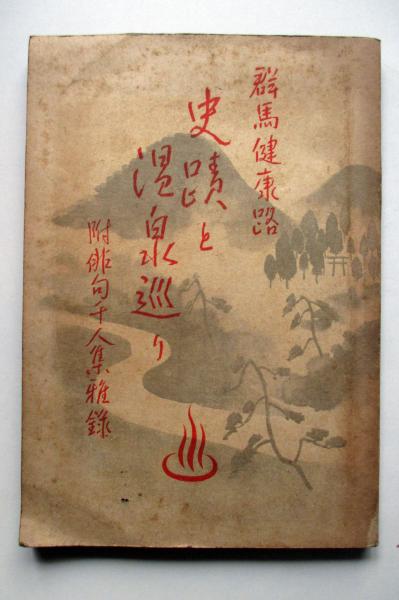 群馬健康路
史蹟と
温泉巡り
附俳句千人集雅録